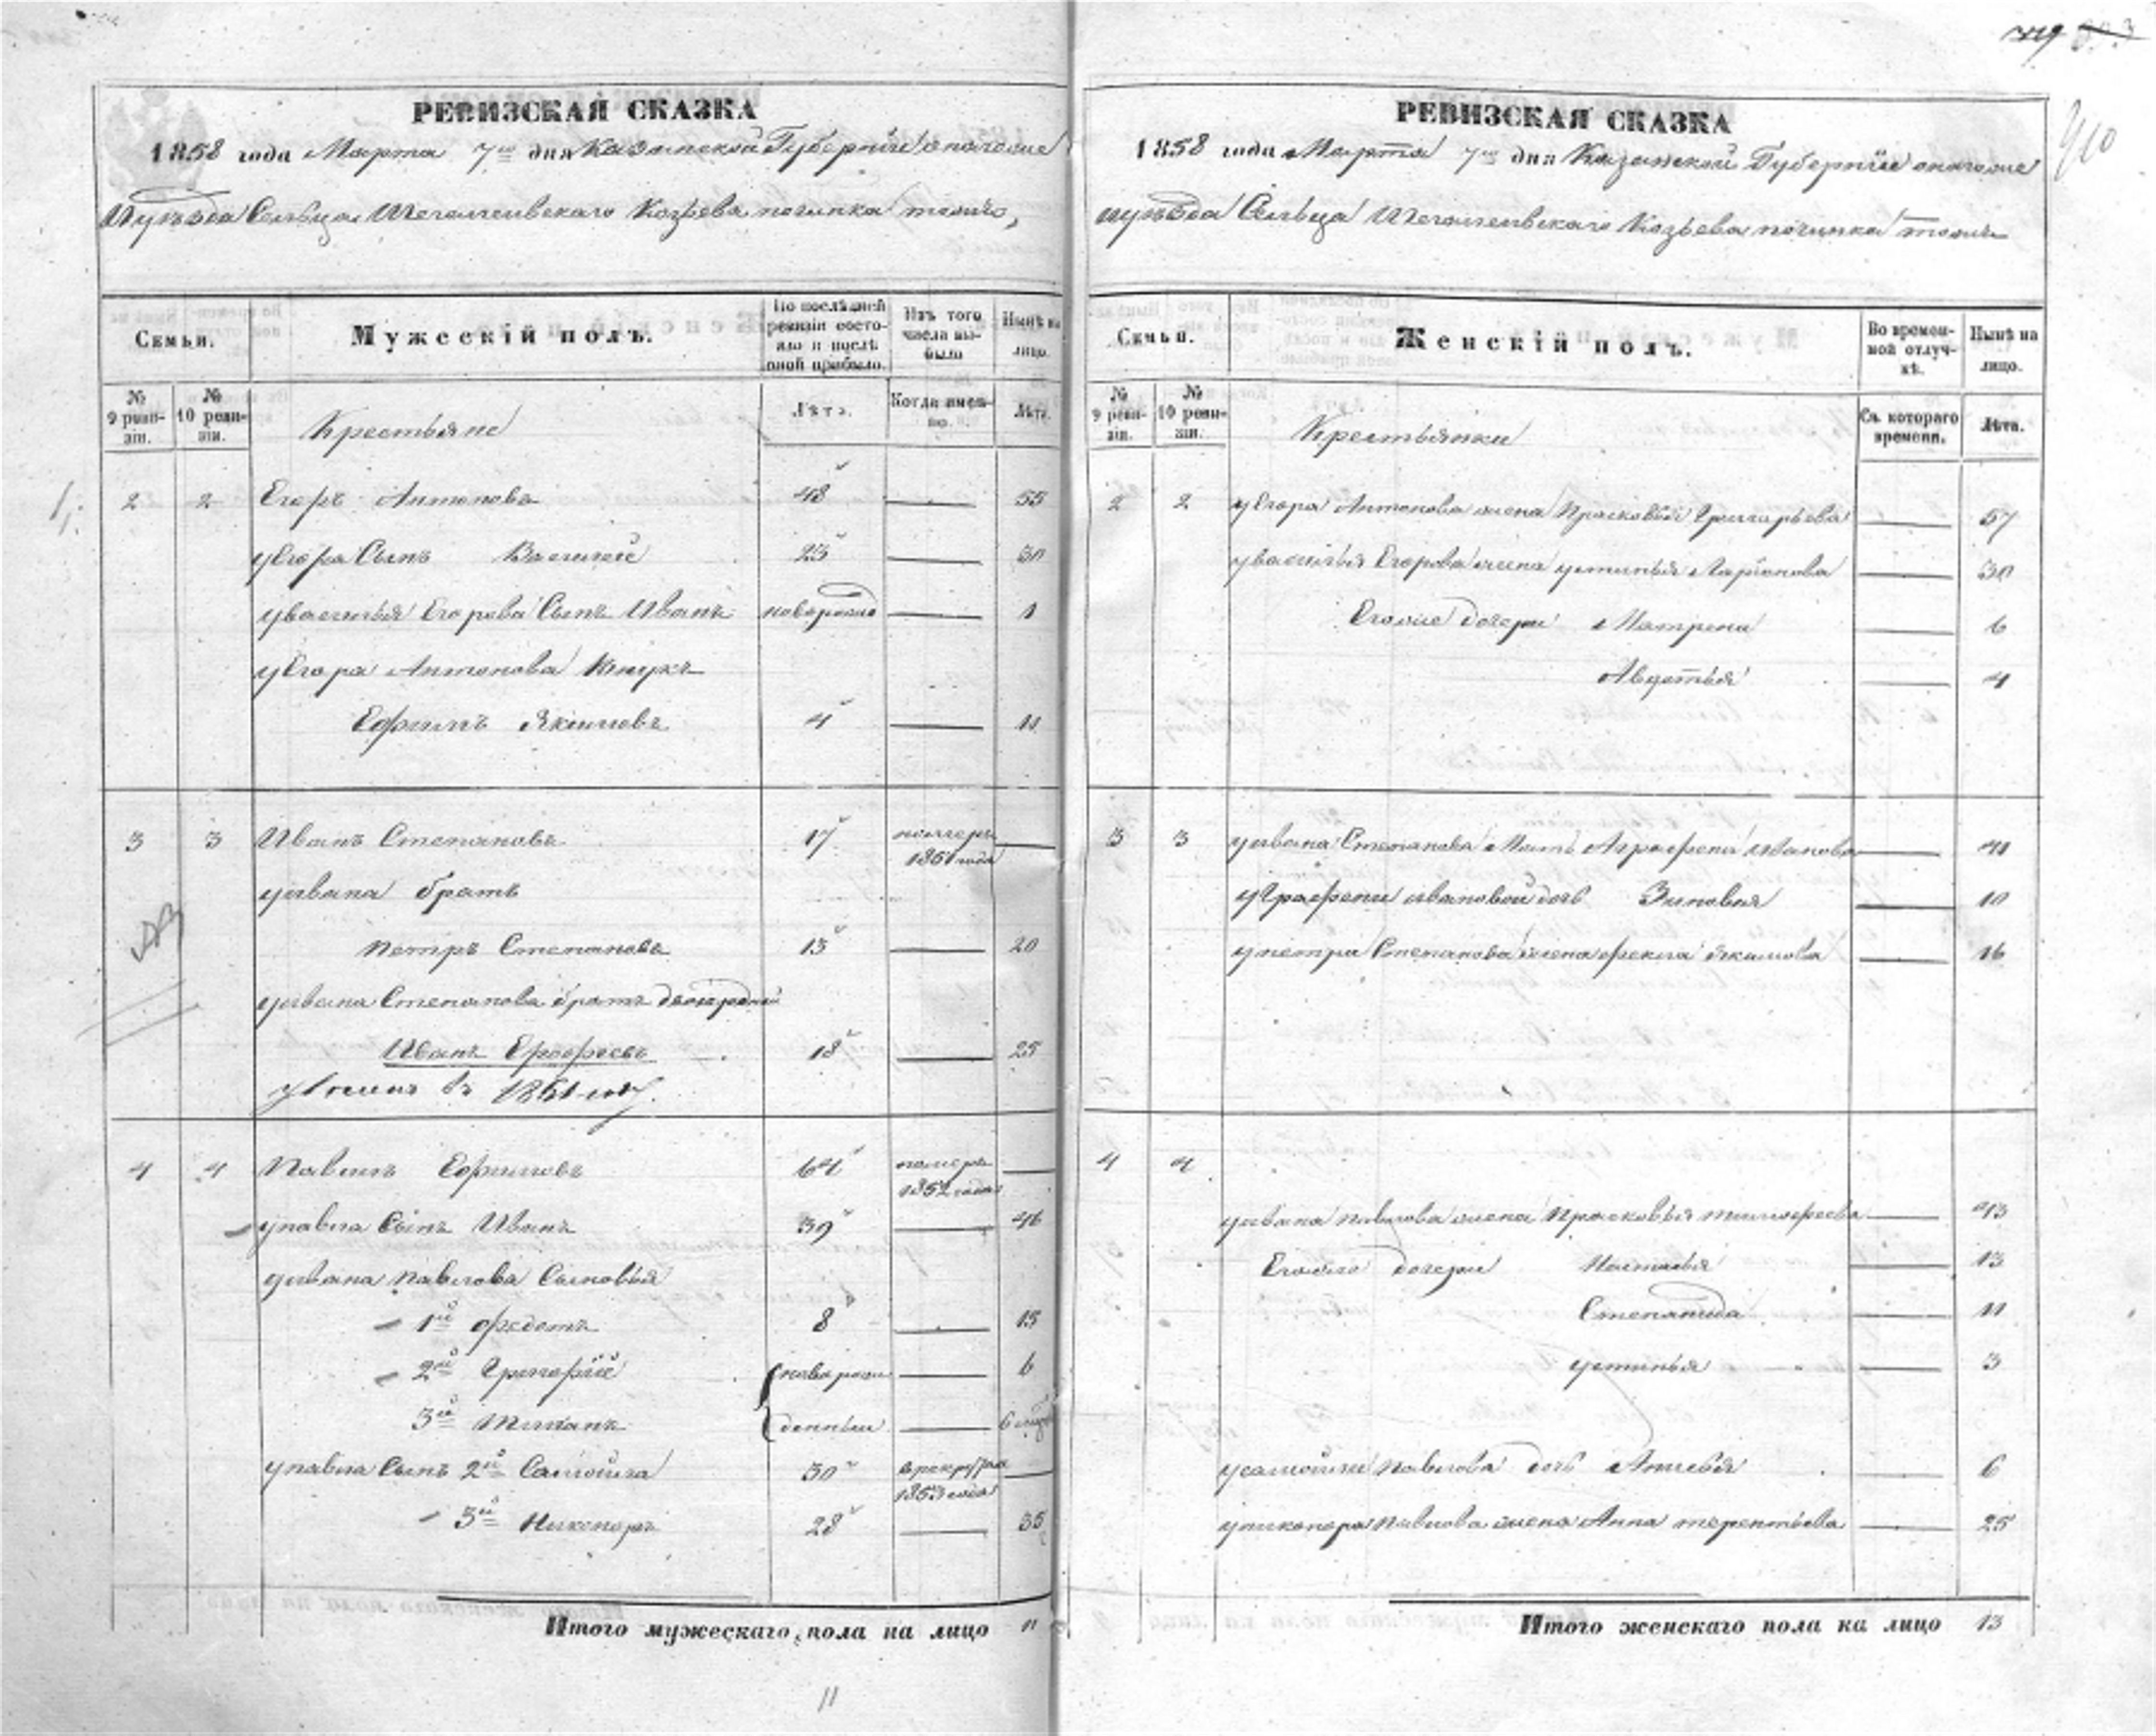 РЕВИЗСКАЯ СКАЗКА
1858 года Марта 7го дня Казанской Губернии
Уѣзда Сельца Козьева починка тожъ,
Семьи.
Мужескій полъ.
По послѣдней ревизіи состояло и послѣ оной прибыло.
Изъ того числа выбыло
Нынѣ на лицо.
№ 9 ревизіи.
№ 10 ревизіи.
Крестьяне
Лѣта.
Когда именно.
Лѣта.
2 2 Егоръ Антоновъ 48 55
у Егора Сынъ Василей 23 30
у василья Егорова Сынъ Иванъ новорожд 1
у Егора Антонова Внукъ
Ефимъ Якимовъ 4 11
3 3 Иванъ Степановъ 17 померъ 1851 года
у ивана братъ
петръ Степановъ 13 20
у ивана Степанова братъ двоюродной
Иванъ Ерофѣевъ 18 25
въ 1851 году.
4 4 Павелъ Ефимовъ 64 померъ 1852 года
у павла Сынъ Иванъ 39 46
у ивана павлова Сыновья
1й федотъ 8 15
2й Григорій новорож 6
3й денныи 6
у павла Сынъ 2й Самойла 30 в рекруты 1853 года
3й Никоноръ 28 35
Итого мужескаго пола на лицо 11
11
РЕВИЗСКАЯ СКАЗКА
1858 года Марта 7го дня Казанской Губерніи
уѣзда Сельца Козьева починка тожъ
910
Семьи.
Женскій полъ.
Во временной отлучкѣ.
Нынѣ на лицо.
№ 9 ревизіи.
№ 10 ревизіи.
Крестьянки
Съ котораго времени.
Лѣта.
2 2 у Егора Антонова жена Прасковья Григорьева 57
у василья Егорова жена устинья Ларионова 30
Еговые дочери Матрена 6
Авдотья 4
3 3 у ивана Степанова Мать Аграфена иванова 41
у Аграфены ивановой дочь Зиновья 10
у петра Степанова жена фекла Якимова 16
4 4
у ивана павлова жена Прасковья тимофеева 43
дочери Настасья 13
Степанида 11
устинья 3
у самойлы павлова дочь 6
у никонора павлова жена Анна терентьева 25
Итого женскаго пола на лицо 13